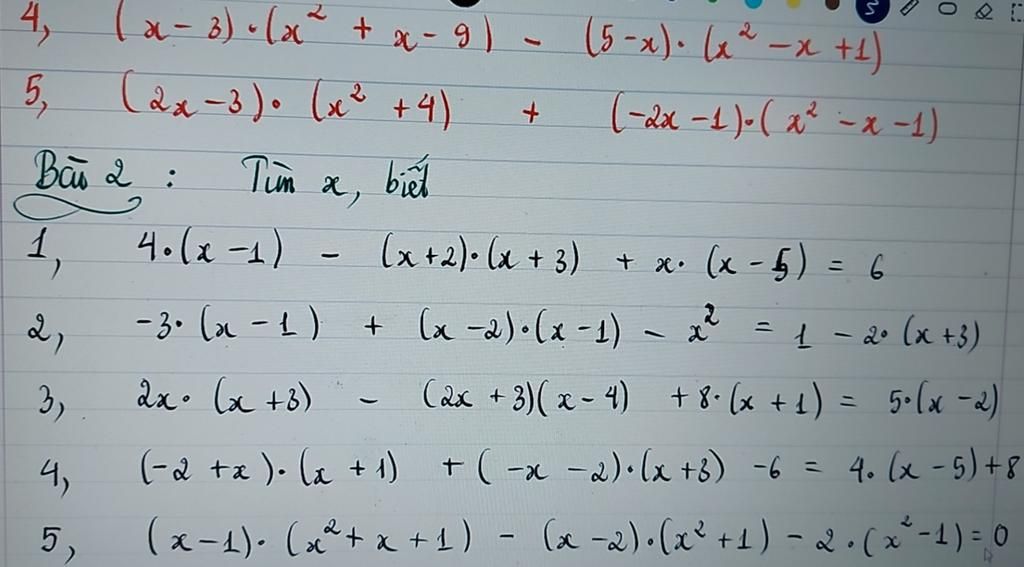 4, (x - 3)·(x² + x - 9) - (5 - x)·(x² - x + 1)
5, (2x - 3)·(x² + 4) + (-2x - 1)·(x² - x - 1)
Bài 2 : Tìm x, biết
1, 4·(x - 1) - (x + 2)·(x + 3) + x·(x - 5) = 6
2, -3·(x - 1) + (x - 2)·(x - 1) - x² = 1 - 2·(x + 3)
3, 2x·(x + 3) - (2x + 3)(x - 4) + 8·(x + 1) = 5·(x - 2)
4, (-2 + x)·(x + 1) + (-x - 2)·(x + 3) - 6 = 4·(x - 5) + 8
5, (x - 1)·(x² + x + 1) - (x - 2)·(x² + 1) - 2·(x² - 1) = 0